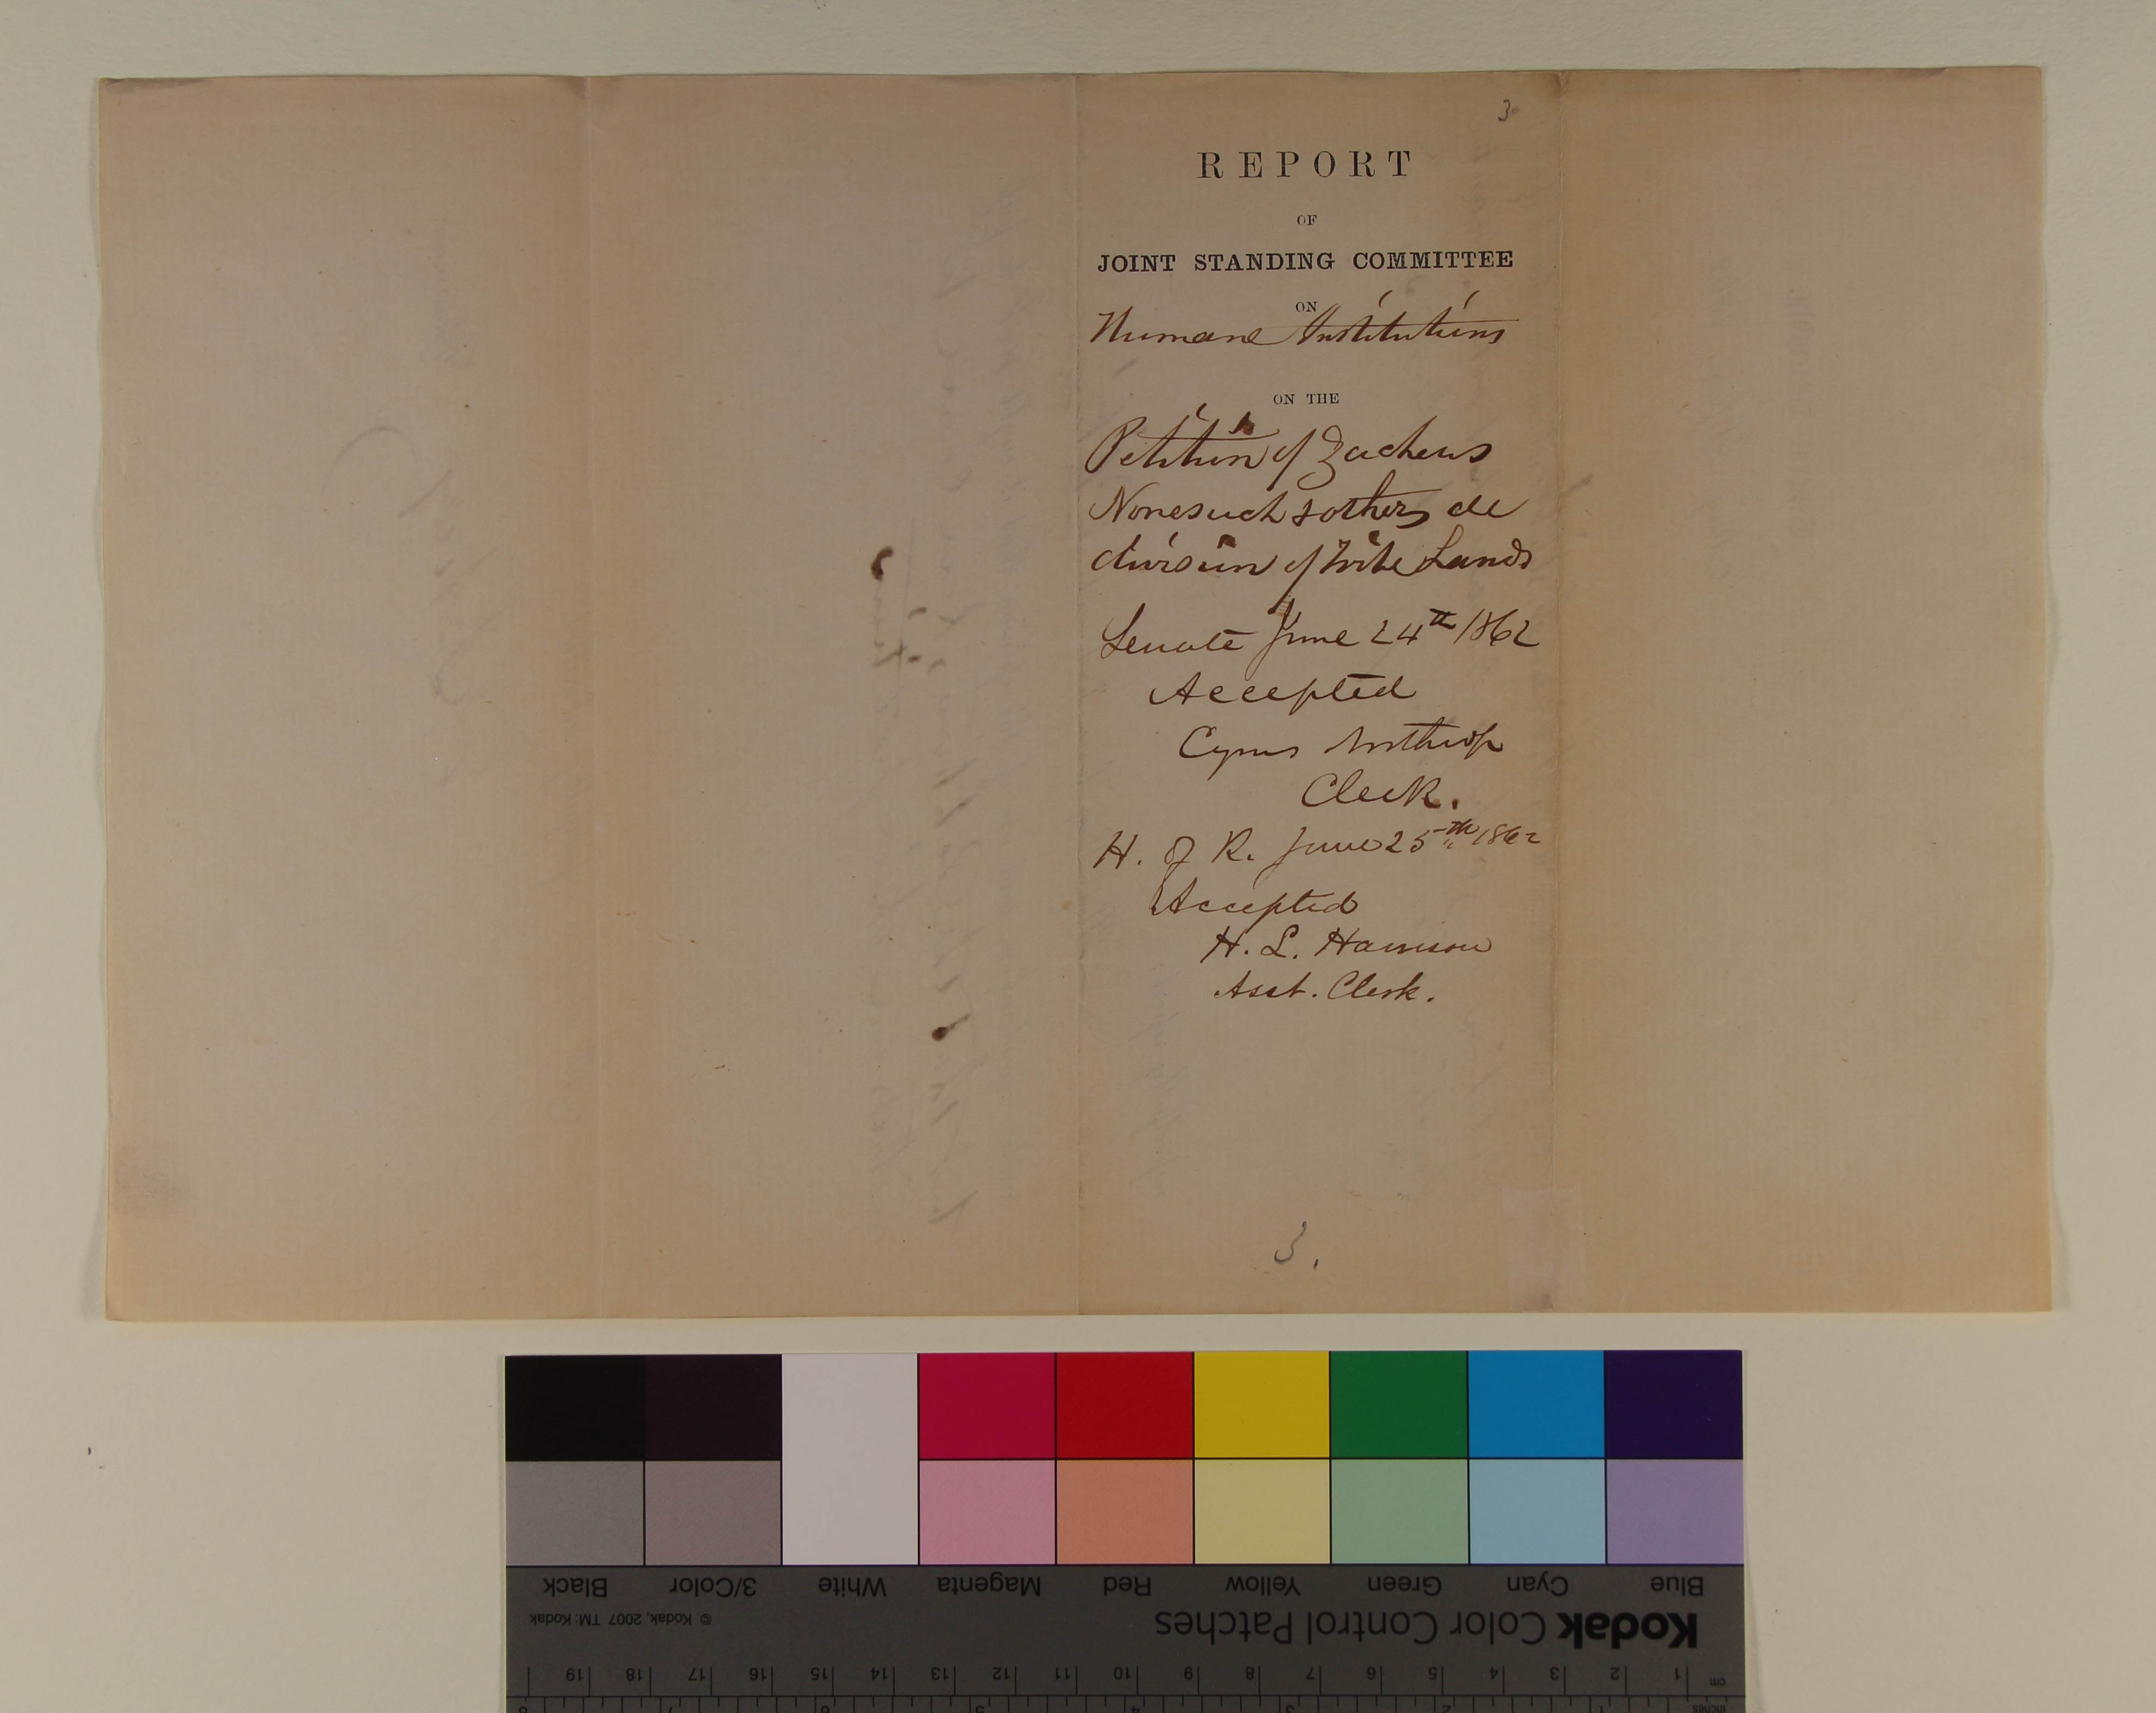 3
REPORT
OF
JOINT STANDING COMMITTEE
ON
Humane Institutions
ON THE
Petition of Zacheus
Nonesuch & others de
division of Tribe Lands
Senate June 24th 1862
Accepted
Cyrus Northrop
Clerk.
H. of R. June 25th 1862
Accepted
H. L. Harrison
Asst. Clerk.
3.
Black 3/Color White Magenta Red Yellow Green Cyan Blue
© Kodak, 2007 TM: Kodak
Kodak Color Control Patches
cm 1 2 3 4 5 6 7 8 9 10 11 12 13 14 15 16 17 18 19